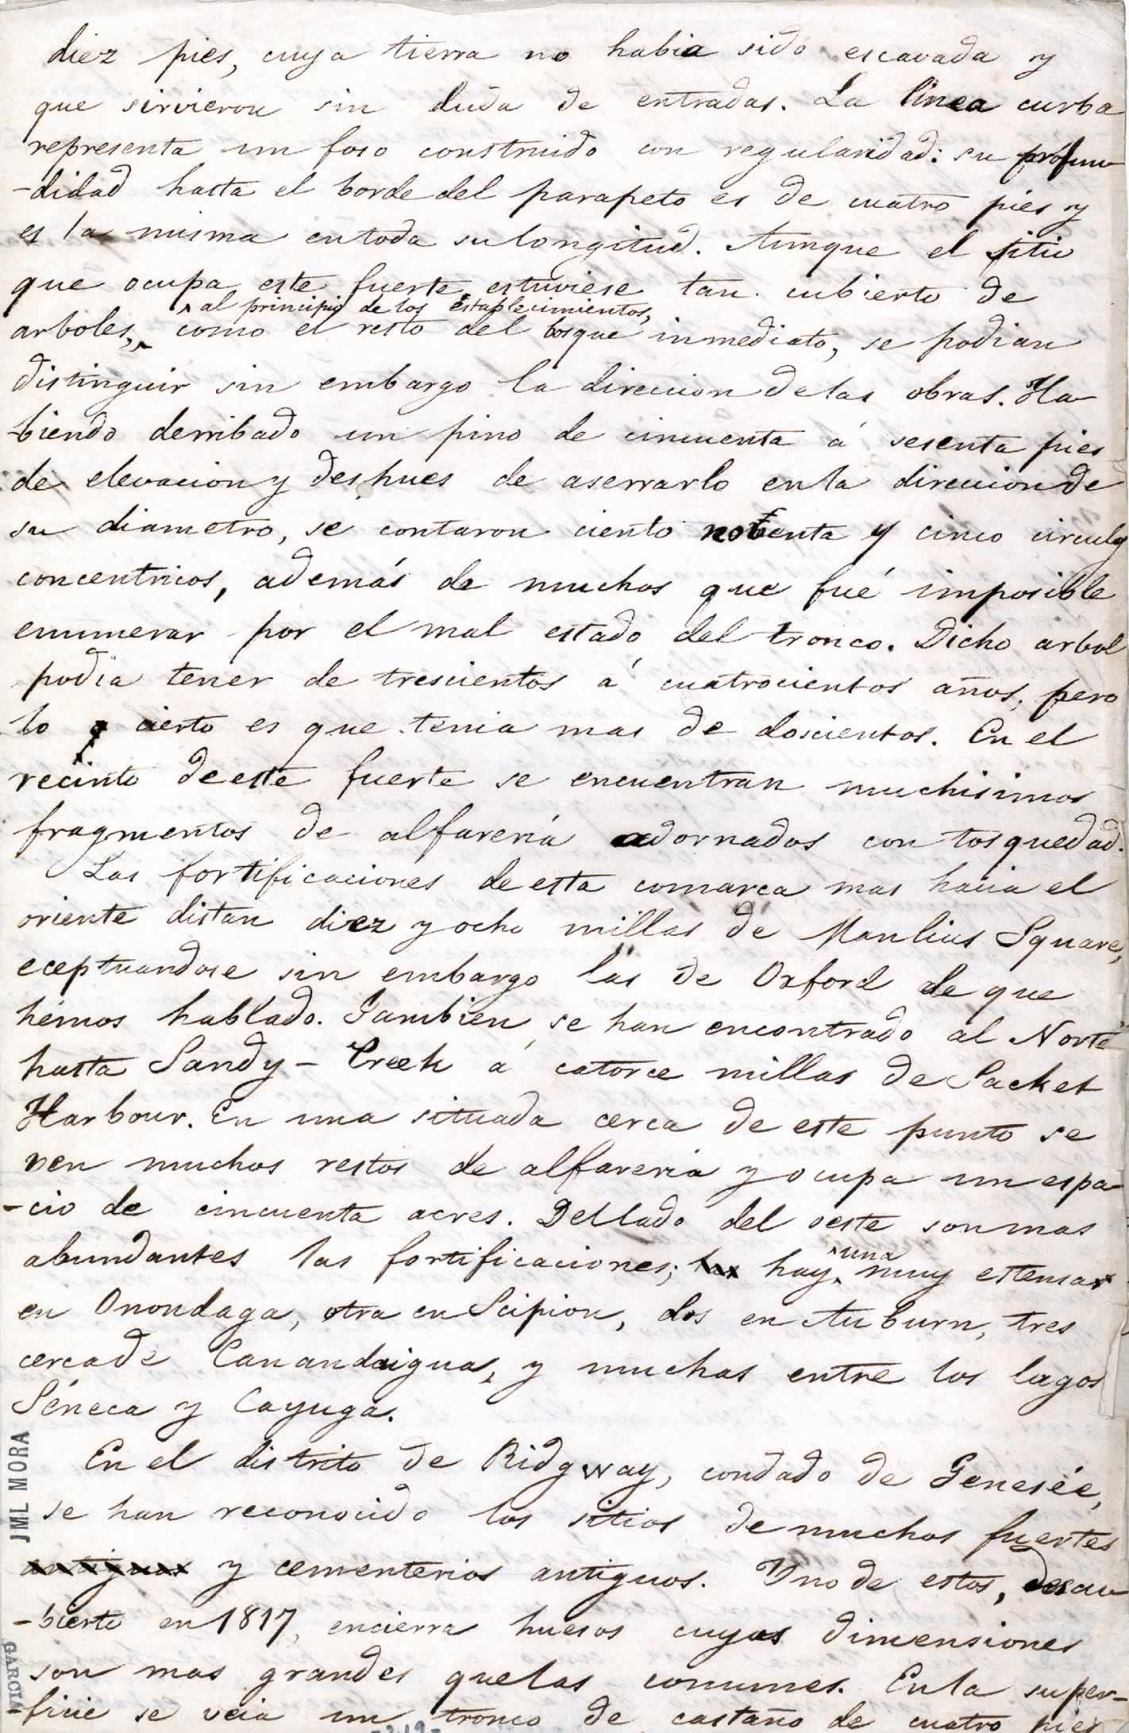 diez pies, cuya tierra no habia sido escavada y
que sirvieron sin duda de entradas. La linea curba
representa un foso construido con regularidad: su profun
-didad hasta el borde del parapeto es de cuatro pies y
es la misma en toda su longitud. Aunque el sitio
que ocupa este fuerte estuviese tan cubierto de
al principio de los establecimientos,
arboles, como el resto del bosque inmediato, se podian
distinguir sin embargo la direccion de las obras. Ha
-biendo derribado un pino de cincuenta á sesenta pies
de elevacion y despues de aserrarlo en la direccion de
su diametro, se contaron ciento noventa y cinco circulos
concentricos, además de muchos que fué imposible
enumerar por el mal estado del tronco. Dicho arbol
podia tener de trescientos á cuatrocientos años, pero
lo cierto es que tenia mas de doscientos. En el
recinto de este fuerte se encuentran muchisimos
fragmentos de alfareria adornados con tosquedad.
Las fortificaciones de esta comarca mas hacia el
oriente distan diez y ocho millas de Manlius Square,
eceptuandose sin embargo las de Oxford de que
hémos hablado. Tambien se han encontrado al Norte
hasta Sandy-Creek á catorce millas de Sacket
Harbour. En una situada cerca de este punto se
ven muchos restos de alfareria y ocupa un espa
-cio de cincuenta acres. Del lado del oeste son mas
abundantes las fortificaciones; hay una muy estensa
en Onondaga, otra en Scipion, dos en Auburn, tres
cerca de Canandaigua, y muchas entre los lagos
Séneca y Cayuga.
En el distrito de Ridgway, condado de Genesée,
se han reconocido los sitios de muchos fuertes
antiguos y cementerios antiguos. Uno de estos, descu
-bierto en 1817, encierra huesos cuyas dimensiones
son mas grandes que las comunes. En la super-
-ficie se veia un tronco de castaño de cuatro pies
JML MORA
GARCIA
-219-